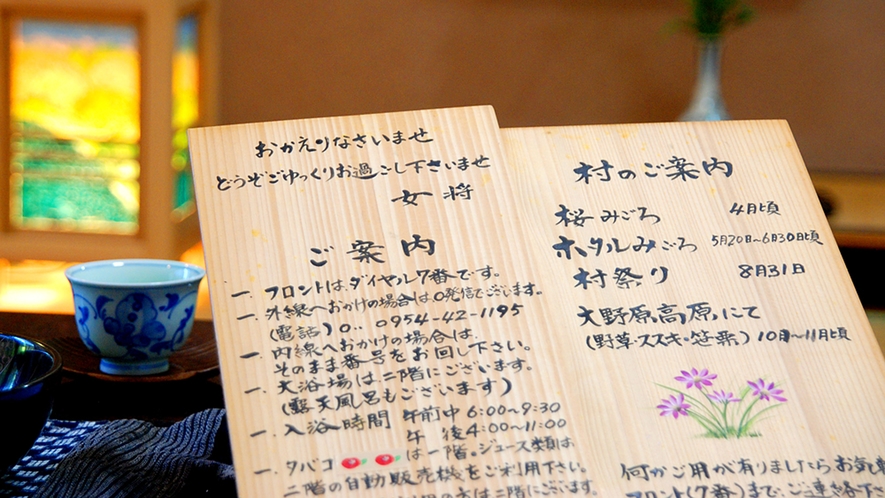 おかえりなさいませ
どうぞごゆっくりお過ごし下さいませ
女将
ご案内
一、フロントは、ダイヤル7番です。
一、外線へおかけの場合は、0発信でございます。
(電話)0.. 0954-42-1195
一、内線へおかけの場合は、
そのまま番号をお回し下さい。
一、大浴場は、二階にございます。
(露天風呂もございます)
一、入浴時間 午前中 6:00〜9:30
午後 4:00〜11:00
一、タバコ は一階。ジュース類は
二階の自動販売機をご利用下さい。
は二階にございます。
村のご案内
桜みごろ 4月頃
ホタルみごろ 5月20日〜6月30日頃
村祭り 8月31日
大野原高原にて
(野草・ススキ・笹栗) 10月〜11月頃
何かご用が有りましたらお気軽
フロント(7番)まで、ご連絡下さ